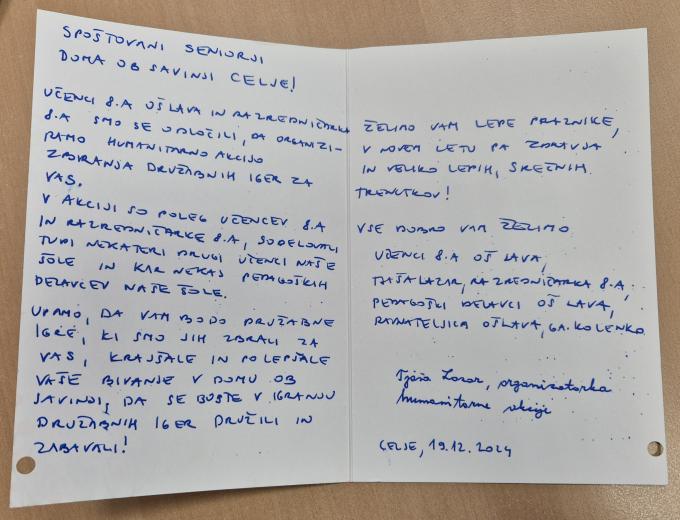 SPOŠTOVANI SENIORJI
DOMA OB SAVINJI CELJE!
UČENCI 8.A OŠ LAVA IN RAZREDNIČARKA
8.A SMO SE ODLOČILI, DA ORGANIZI-
RAMO HUMANITARNO AKCIJO
ZBIRANJA DRUŽABNIH IGER ZA
VAS.
V AKCIJI SO POLEG UČENCEV 8.A
IN RAZREDNIČARKE 8.A, SODELOVALI
TUDI NEKATERI DRUGI UČENCI NAŠE
ŠOLE IN KAR NEKAJ PEDAGOŠKIH
DELAVCEV NAŠE ŠOLE.
UPAMO, DA VAM BODO DRUŽABNE
IGRE, KI SMO JIH ZBRALI ZA
VAS, KRAJŠALE IN POLEPŠALE
VAŠE BIVANJE V DOMU OB
SAVINJI, DA SE BOSTE V IGRANJU
DRUŽABNIH IGER DRUŽILI IN
ZABAVALI!
ŽELIMO VAM LEPE PRAZNIKE,
V NOVEM LETU PA ZDRAVJA
IN VELIKO LEPIH, SREČNIH
TRENUTKOV!
VSE DOBRO VAM ŽELIMO
UČENCI 8.A OŠ LAVA,
TJAŠA LAZAR, RAZREDNIČARKA 8.A,
PEDAGOŠKI DELAVCI OŠ LAVA,
RAVNATELJICA OŠ LAVA, GA. KOLENKO.
Tjaša Lazar, organizatorka
humanitarne akcije
CELJE, 19.12.2024